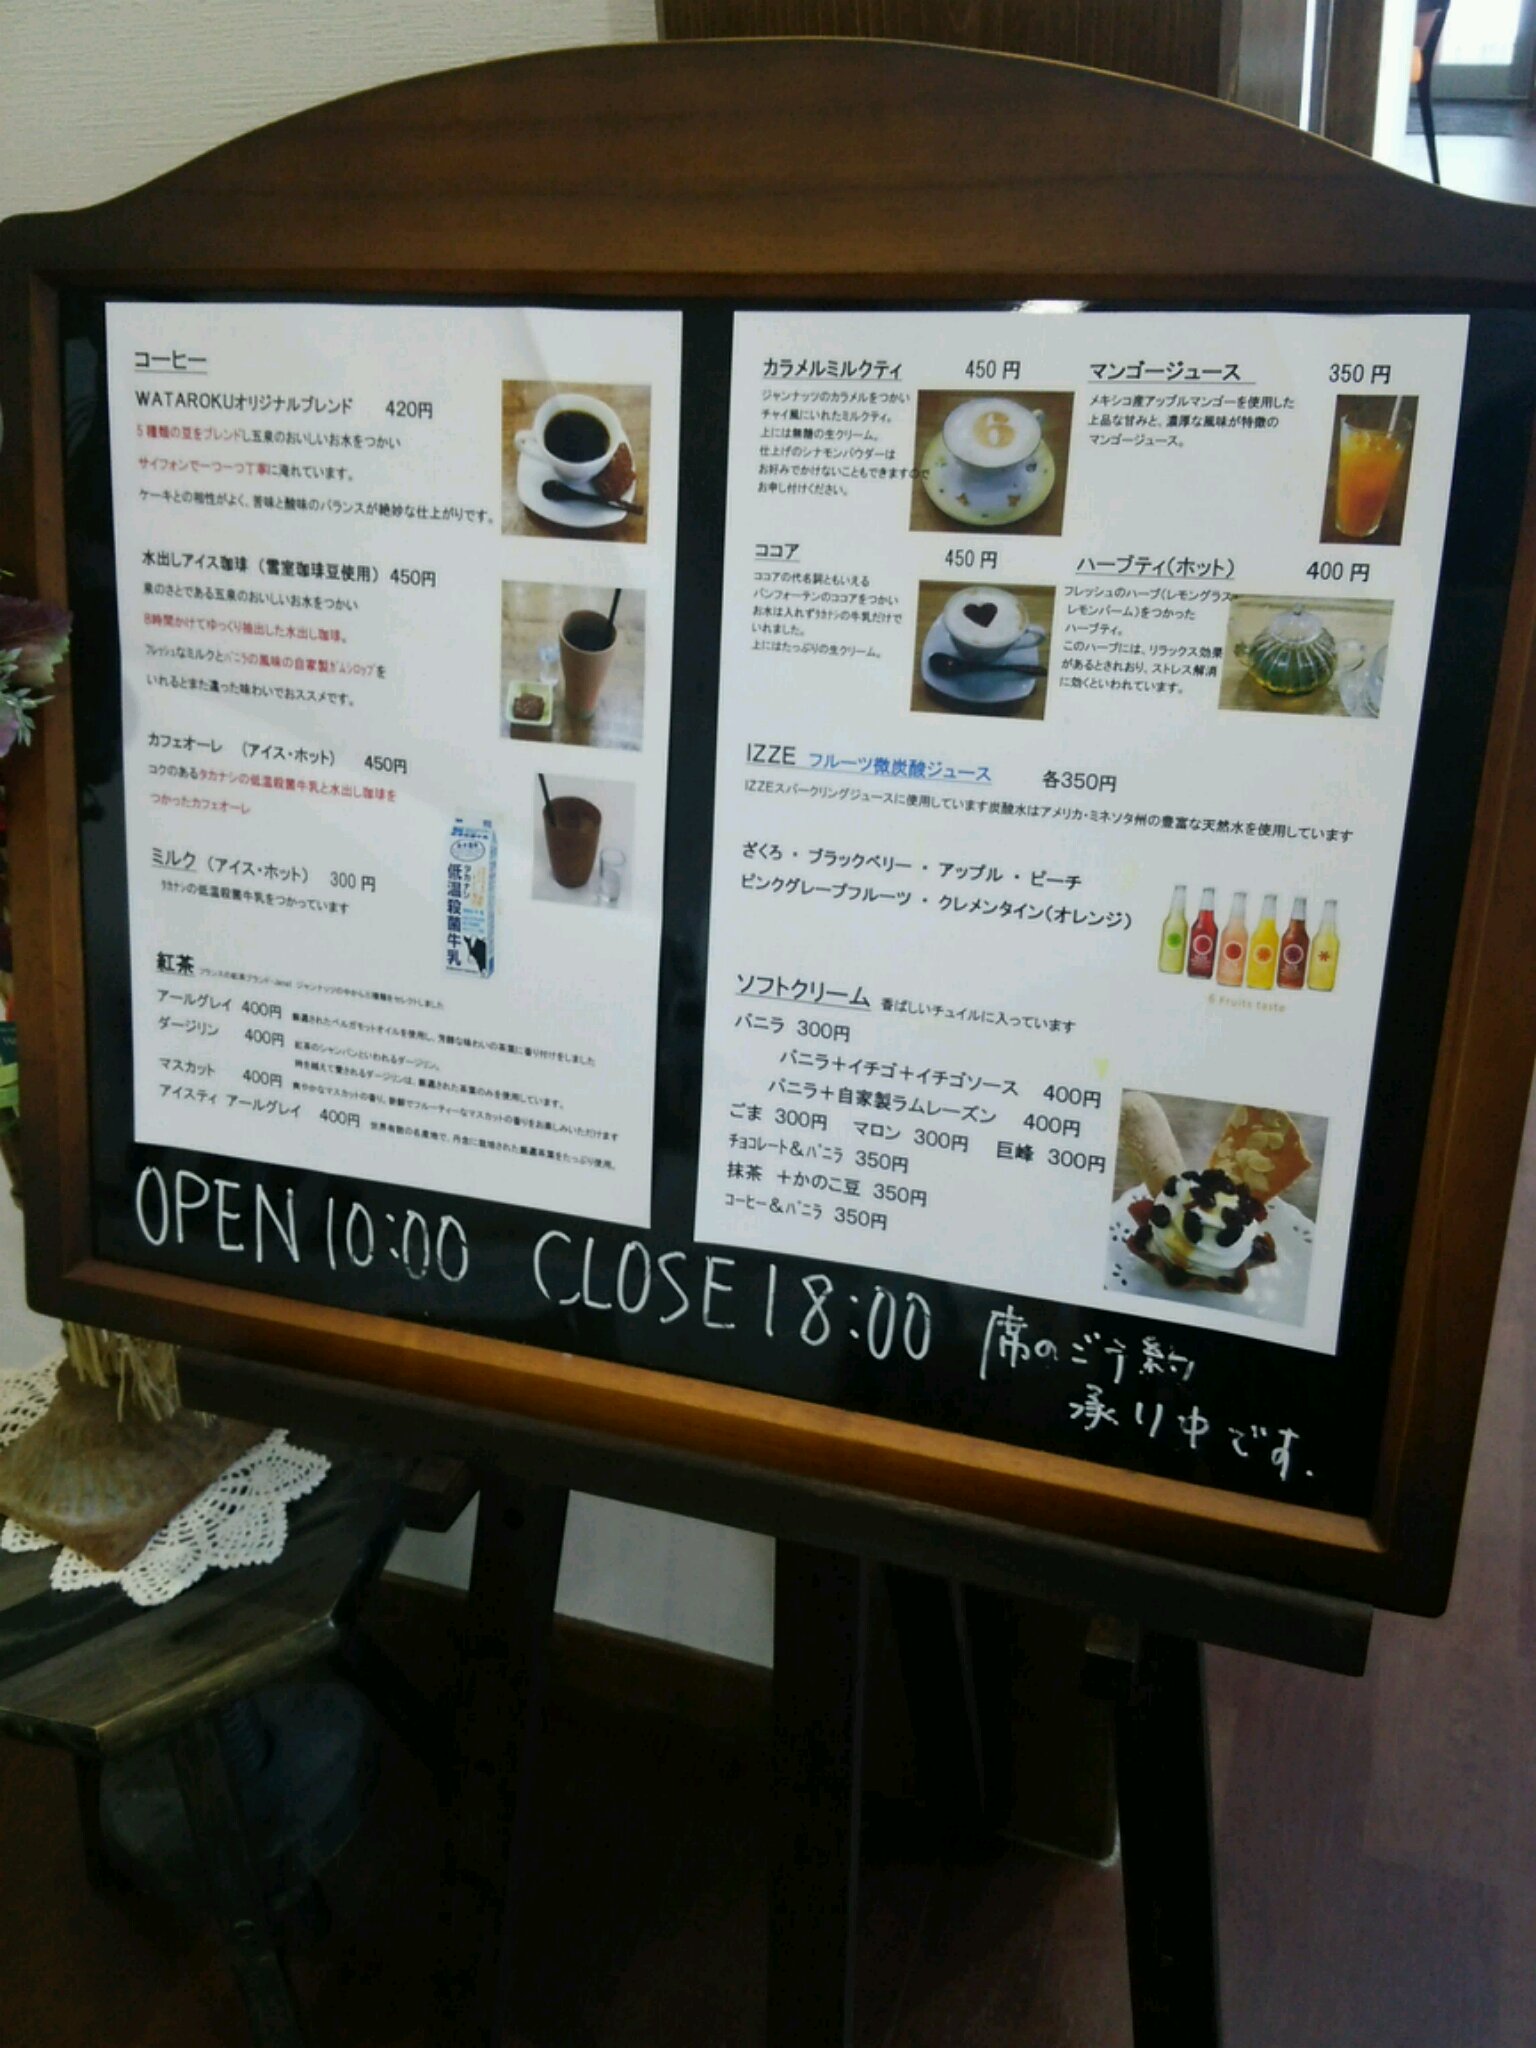 コーヒー
WATAROKUオリジナルブレンド 420円
5種類の豆をブレンドし五泉のおいしいお水をつかい
サイフォンで一つ一つ丁寧に淹れています。
ケーキとの相性がよく、苦味と酸味のバランスが絶妙な仕上がりです。
水出しアイス珈琲（雪室珈琲豆使用）450円
泉のさとである五泉のおいしいお水をつかい
8時間かけてゆっくり抽出した水出し珈琲。
フレッシュなミルクとバニラの風味の自家製ガムシロップを
いれるとまた違った味わいでおススメです。
カフェオーレ （アイス・ホット） 450円
コクのあるタカナシの低温殺菌牛乳と水出し珈琲を
つかったカフェオーレ
ミルク（アイス・ホット） 300円
タカナシの低温殺菌牛乳をつかっています
タカナシ
低温殺菌牛乳
紅茶 フランスの紅茶ブランド ジャンナッツのやから三種類をセレクトしました
アールグレイ 400円 厳選されたベルガモットオイルを使用し、芳醇な味わいの茶葉に香り付けをしました
ダージリン 400円 紅茶のシャンパンといわれるダージリン。
時を越えて愛されるダージリンは、厳選された茶葉のみを使用しています。
マスカット 400円 爽やかなマスカットの香り、新鮮でフルーティーなマスカットの香りをお楽しみいただけます
アイスティ アールグレイ 400円 世界有数の名産地で、丹念に栽培された厳選茶葉をたっぷり使用。
カラメルミルクティ 450円
ジャンナッツのカラメルをつかい
チャイ風にいれたミルクティ。
上には無糖の生クリーム。
仕上げのシナモンパウダーは
お好みでかけないこともできますので
お申し付けください。
6
マンゴージュース 350円
メキシコ産アップルマンゴーを使用した
上品な甘みと、濃厚な風味が特徴の
マンゴージュース。
ココア 450円
ココアの代名詞ともいえる
バンフォーテンのココアをつかい
お水は入れずタカナシの牛乳だけで
いれました。
上にはたっぷりの生クリーム。
ハーブティ（ホット） 400円
フレッシュのハーブ（レモングラス・
レモンバーム）をつかった
ハーブティ。
このハーブには、リラックス効果
があるとされおり、ストレス解消
に効くといわれています。
IZZE フルーツ微炭酸ジュース 各350円
IZZEスパークリングジュースに使用しています炭酸水はアメリカ・ミネソタ州の豊富な天然水を使用しています
ざくろ ・ ブラックベリー ・ アップル ・ ピーチ
ピンクグレープフルーツ ・ クレメンタイン（オレンジ）
6 Fruits taste
ソフトクリーム 香ばしいチュイルに入っています
バニラ 300円
バニラ＋イチゴ＋イチゴソース 400円
バニラ＋自家製ラムレーズン 400円
ごま 300円 マロン 300円 巨峰 300円
チョコレート＆バニラ 350円
抹茶 ＋かのこ豆 350円
コーヒー＆バニラ 350円
OPEN 10:00 CLOSE 18:00 席のご予約
承り中です.